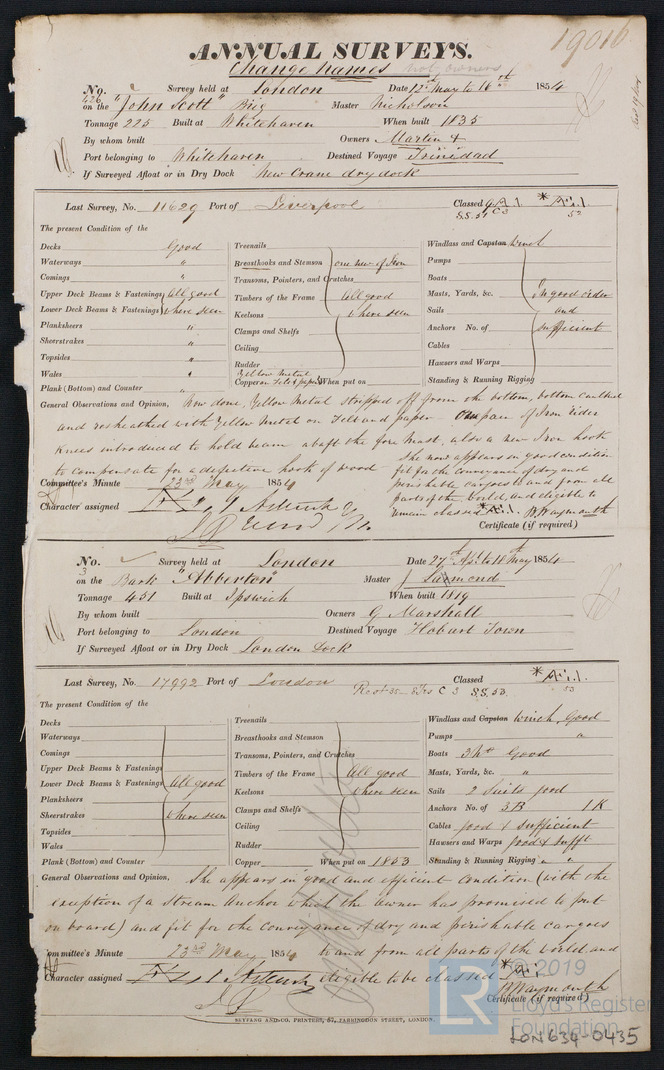 19016
ANNUAL SURVEYS.
Change names not owners
No. 426 Survey held at London Date 12th May to 16th 1854
on the "John Scott" Brig Master Nicholson
Tonnage 225 Built at Whitehaven When built 1835
By whom built Owners Martin &
Port belonging to Whitehaven Destined Voyage Trinidad
If Surveyed Afloat or in Dry Dock New Crane dry dock
Last Survey, No. 11629 Port of Liverpool Classed *A.1.
S.S. 51 C 3 52
The present Condition of the
Decks Good
Waterways "
Comings "
Upper Deck Beams & Fastenings All good
Lower Deck Beams & Fastenings where seen
Planksheers "
Sheerstrakes "
Topsides "
Wales "
Plank (Bottom) and Counter "
Treenails
Breasthooks and Stemson one new of Iron
Transoms, Pointers, and Crutches
Timbers of the Frame All good
Keelsons where seen
Clamps and Shelfs
Ceiling
Rudder
Yellow Metal
Copper on Felt & paper When put on
Windlass and Capstan Winch
Pumps
Boats
Masts, Yards, &c. In good order
Sails and
Anchors No. of sufficient
Cables
Hawsers and Warps
Standing & Running Rigging
General Observations and Opinion, Now done, Yellow Metal stripped off from the bottom, bottom caulked
and resheathed with Yellow Metal on Felt and paper One pair of Iron Rider
Knees introduced to hold beam abaft the fore mast, also a new Iron hook
to compensate for a defective hook of wood
She now appears in good condition
fit for the conveyance of dry and
perishable cargoes to and from all
parts of the World, and eligible to
remain classed *A.1.
W. Waymouth
Committee's Minute 23rd May 1854
Character assigned
Certificate (if required)
No. 3 Survey held at London Date 27th Apl to 18th May 1854
on the Bark "Abberton" Master J Saxmond
Tonnage 451 Built at Ipswich When built 1819
By whom built Owners G. Marshall
Port belonging to London Destined Voyage Hobart Town
If Surveyed Afloat or in Dry Dock London Dock
Last Survey, No. 17992 Port of London Classed *A.1.
Rest 35 8 Yrs C 3 S.S. 53 53
The present Condition of the
Decks
Waterways
Comings
Upper Deck Beams & Fastenings
Lower Deck Beams & Fastenings All good
Planksheers
Sheerstrakes where seen
Topsides
Wales
Plank (Bottom) and Counter
Treenails
Breasthooks and Stemson
Transoms, Pointers, and Crutches
Timbers of the Frame All good
Keelsons where seen
Clamps and Shelfs
Ceiling
Rudder
Copper When put on 1853
Windlass and Capstan Winch, Good
Pumps "
Boats 3 Good
Masts, Yards, &c. "
Sails 2 Suits good
Anchors No. of 3B 1K
Cables good & sufficient
Hawsers and Warps good & sufft
Standing & Running Rigging " "
General Observations and Opinion, She appears in good and efficient condition (with the
exception of a Stream Anchor which the owner has promised to put
on board) and fit for the conveyance of dry and perishable cargoes
Committee's Minute 23rd May 1854 to and from all parts of the World and
Character assigned eligible to be classed *A.1.
W. Waymouth
Certificate (if required)
SEYFANG AND CO., PRINTERS, 57, FARRINGDON STREET, LONDON.
© 2019
LR
Lloyd's Register
Foundation
LON634-0435